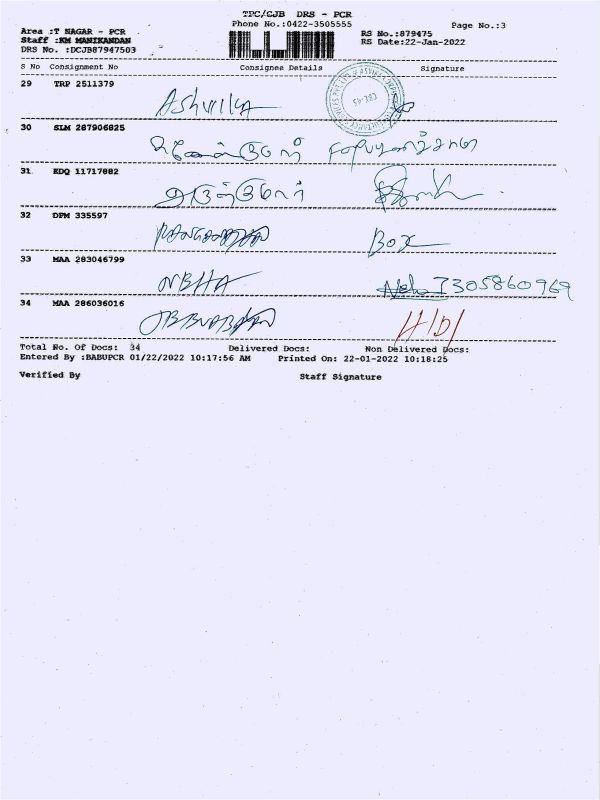 TPC/CJB DRS - PCR
Phone No.:0422-3505555
Page No.:3
Area :T NAGAR - PCR
RS No.:879475
Staff :KM MANIKANDAN
RS Date:22-Jan-2022
DRS No. :DCJB87947503
S No Consignment No Consignee Details Signature
29 TRP 2511379
Ashvika
30 SLM 287906825
31 KDQ 11717882
32 DPM 335597
Box
33 MAA 283046799
NBHA Neha 7305860969
34 MAA 286036016
H/D/
Total No. Of Docs: 34 Delivered Docs: Non Delivered Docs:
Entered By :BABUPCR 01/22/2022 10:17:56 AM Printed On: 22-01-2022 10:18:25
Verified By Staff Signature